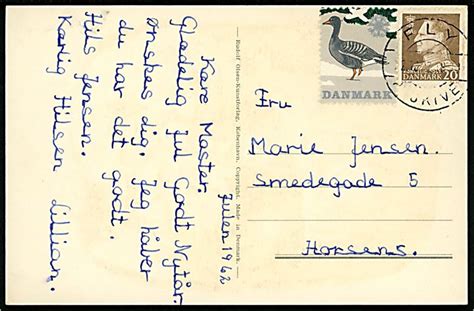 Julen 1962
Kære Moster.
Glædelig Jul Godt Nytår.
ønskes dig. Jeg håber
du har det godt.
Hils Jensen.
Kærlig Hilsen Lillian.
Rudolf Olsens Kunstforlag, København. Copyright. Made in Denmark.
DANMARK
DANMARK 20
SKIVE
Fru
Marie Jensen.
Smedegade 5
Horsens.